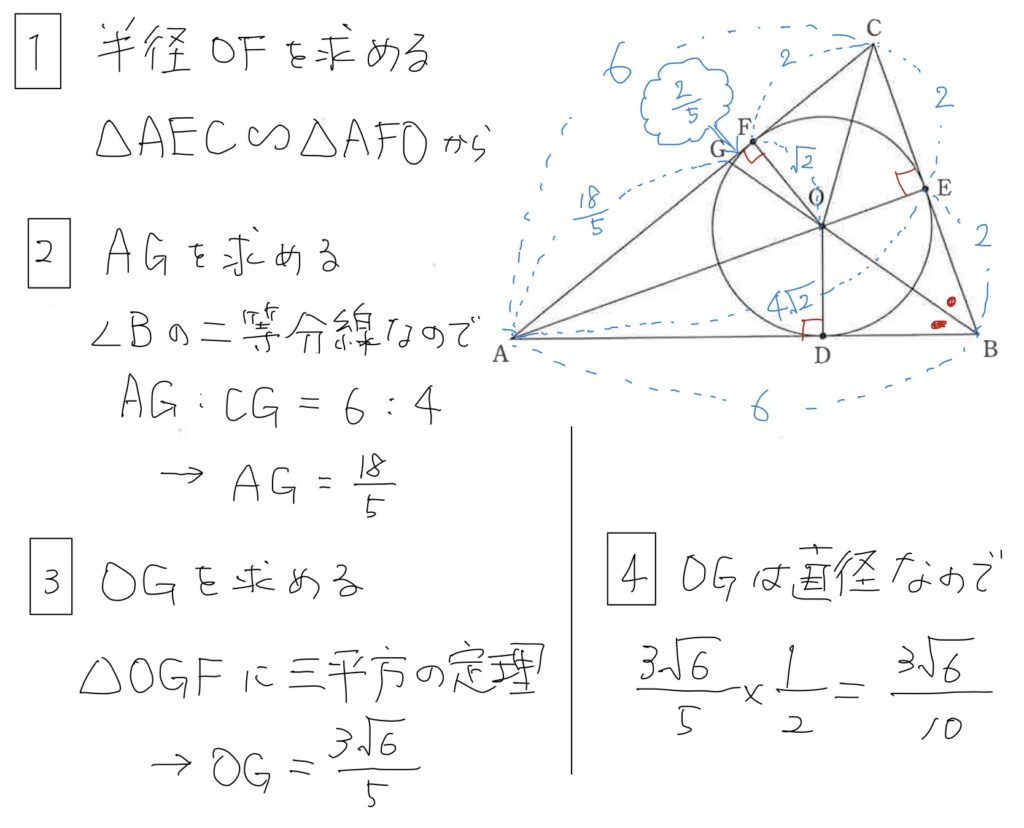 1 半径OFを求める
△AEC∽△AFOから
2 AGを求める
∠Bの二等分線なので
AG:CG=6:4
→ AG=18/5
3 OGを求める
△OGFに三平方の定理
→ OG=3√6/5
4 OGは直径なので
3√6/5×1/2=3√6/10
C
6
2
2/5
2
F
G
√2
18/5
O
E
2
4√2
A
D
B
6